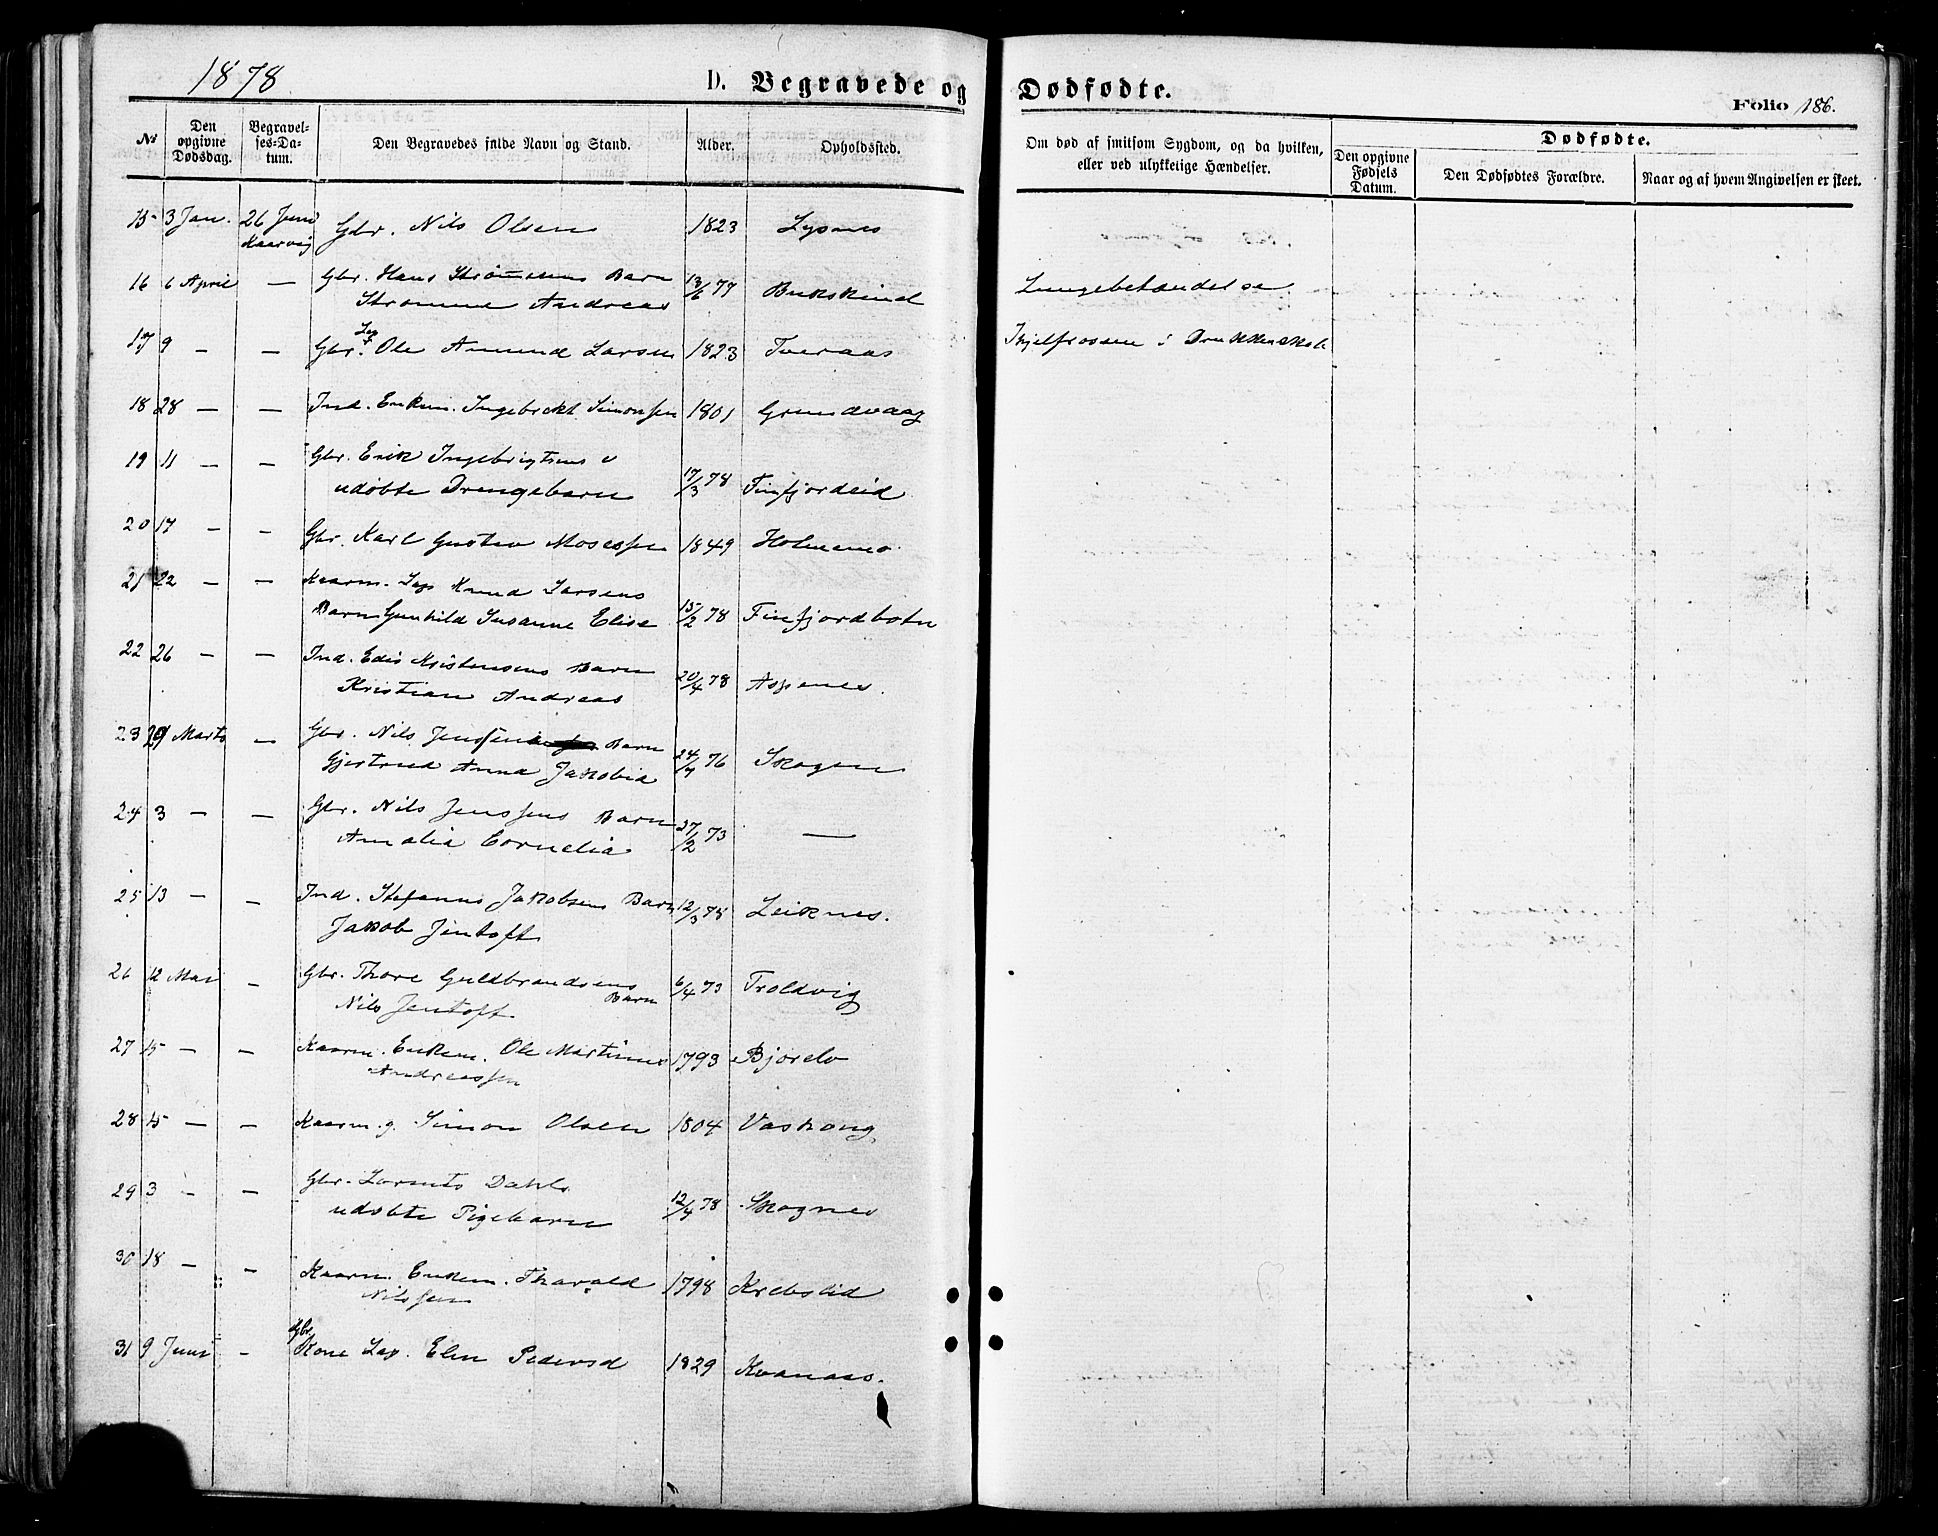 1878
D. Begravede og Dødfødte.
Folio 186.
No
Den opgivne Dødsdag.
Begravelses-Datum.
Den Begravedes fulde Navn og Stand.
Alder.
Opholdssted.
Om død af smitsom Sygdom, og da hvilken, eller ved ulykkelige Hændelser.
Dødfødte.
Den opgivne Fødsels Datum.
Den Dødfødtes Forældre.
Naar og af hvem Angivelsen er skeet.
15 3 Jan. 26 Juni Gbr. Nils Olsen 1823 Lysnes
Kaarvig
16 6 April — Gbr. Hans Strømmesens Barn 13/6 77 Bukskind Lungebetændelse
Strømme Andreas
17 9 — — Gbr. Lap Ole Amund Larsen 1823 Tveraas Ihjelfrossen i Drukkenskab
18 28 — — Ind. Enkem. Ingebrekt Simonsen 1801 Grundvaag
19 11 — — Gbr. Erik Ingebrigtsens
udøbte Drengebarn 17/3 78 Finfjordeid
20 17 — — Gbr. Karl Gustav Mosessen 1849 Holmenes
21 22 — — Kaarm. Lap Knud Larsens
Barn Gunhild Susanne Elise 15/2 78 Finfjordbotn
22 26 — — Ind. Edis Kristensens Barn
Kristian Andreas 20/4 78 Aspenes.
23 29 Marts — Gbr. Nils Jenssens Barn
Gjertrud Anna Jakobia 24/7 76 Skogen
24 3 — — Gbr. Nils Jenssens Barn
Amalia Cornelia 27/2 73 —
25 13 — — Ind. Stefanus Jakobsens Barn 12/3 78 Leiknes.
Jakob Jentoft
26 12 Mai — Gbr. Thore Guldbrandsens Barn 6/4 73 Troldvig
Nils Jentoft
27 15 — — Kaarm. Enkem. Ole Martinus 1793 Bjorelv
Andreassen
28 15 — — Kaarm. g. Simon Olsen 1804
29 3 — — Gbr. Lorents Dahls
udøbte Pigebarn 12/4 78 Skognes
30 18 — — Kaarm. Enkem. Tharald 1798 Krebslid
Nilssen
31 9 Juni — Gbr Kone Lap. Elen Pedersd 1829 Kvanaas.